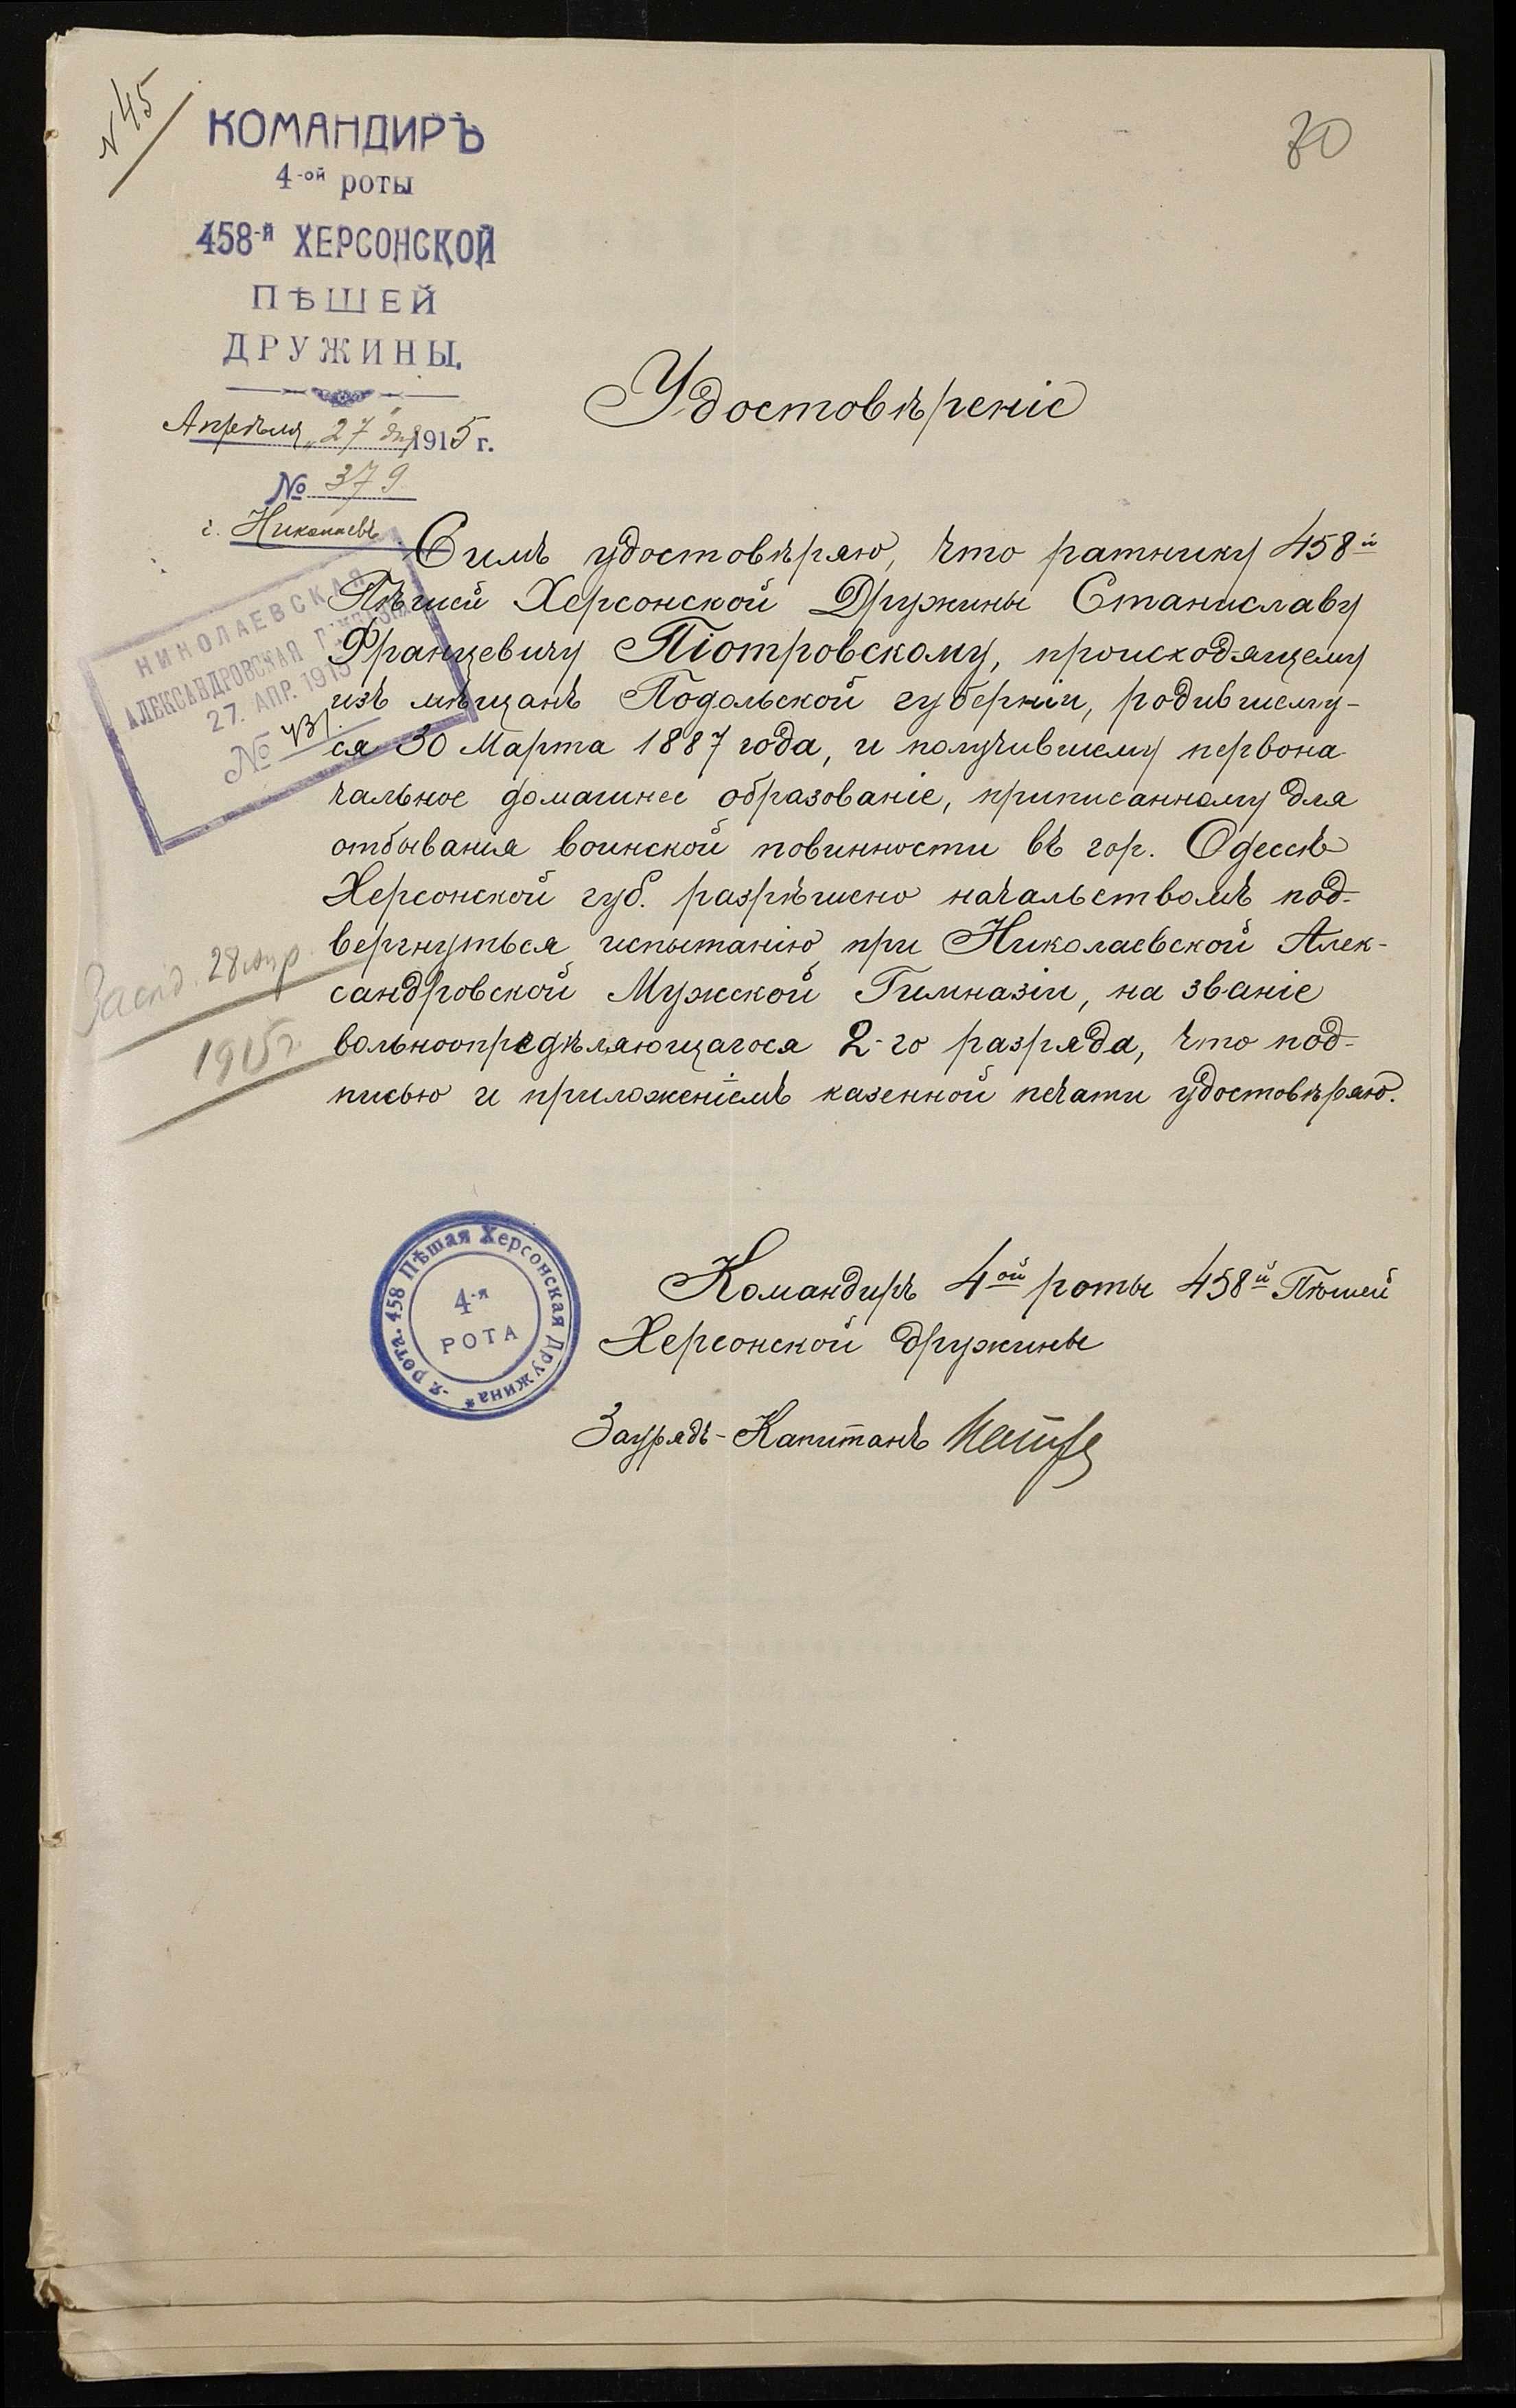 N 45
80
КОМАНДИРЪ
4-ой роты
458-й ХЕРСОНСКОЙ
ПѢШЕЙ
ДРУЖИНЫ.
Апрѣля „27" дня 1915 г.
№ 379
г. Николаевъ
НИКОЛАЕВСКАЯ
АЛЕКСАНДРОВСКАЯ ГИМНАЗІЯ
27. АПР. 1915
№ 431
Удостовѣреніе
Симъ удостовѣряю, что ратнику 458й
Пѣшей Херсонской Дружины Станиславу
Францевичу Піотровскому, происходящему
изъ мѣщанъ Подольской губерніи, родившему-
ся 30 Марта 1887 года, и получившему первона
чальное домашнее образованіе, приписанному для
отбыванія воинской повинности въ гор. Одессѣ
Херсонской губ. разрѣшено начальствомъ под-
вергнуться испытанію при Николаевской Алек-
сандровской Мужской Гимназіи, на званіе
вольноопредѣляющагося 2-го разряда, что под-
писью и приложеніемъ казенной печати удостовѣряю.
28 апр.
1915 г.
4-я рота. 458 Пѣшая Херсонская Дружина*
4-я
РОТА
Командиръ 4ой роты 458й Пѣшей
Херсонской дружины
Заурядъ-Капитанъ